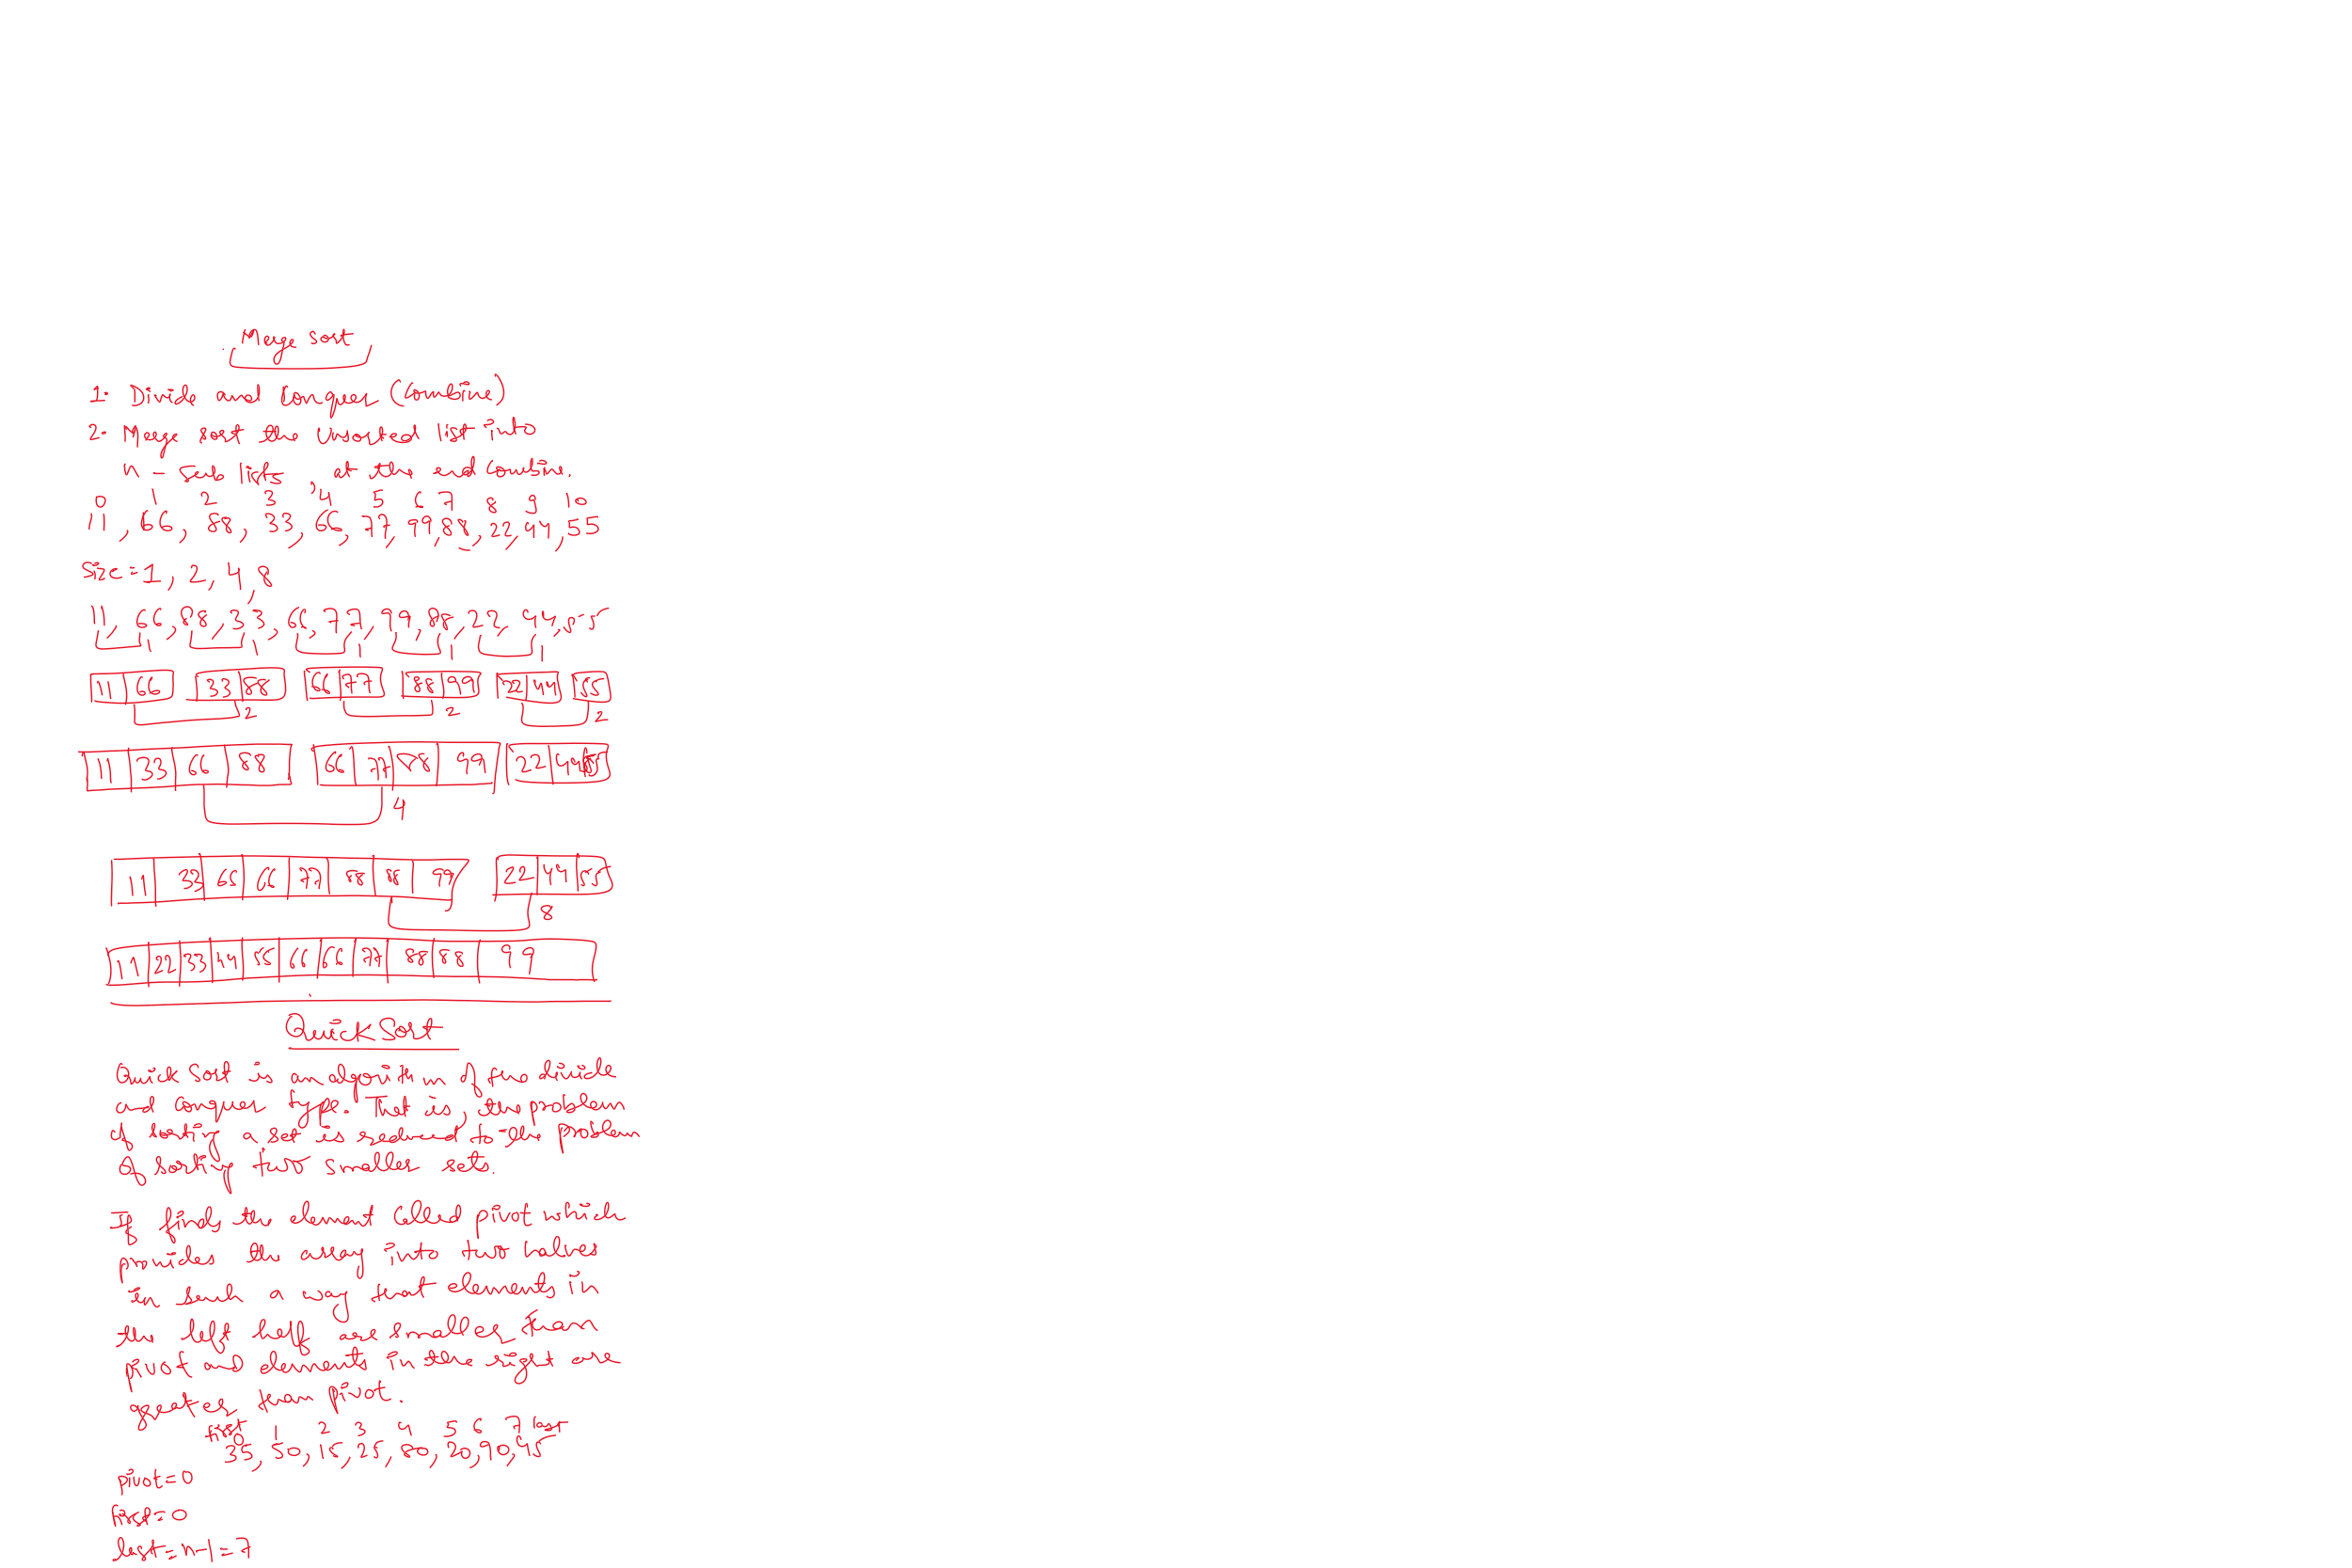 Merge Sort
1. Divide and Conquer (Combine)
2. Merge sort the Unsorted list into
n - Sub lists, at the end Combine.
0 1 2 3 4 5 6 7 8 9 10
11, 66, 88, 33, 66, 77, 99, 88, 22, 44, 55
Size = 1, 2, 4, 8
11, 66, 88, 33, 66, 77, 99, 88, 22, 44, 55
1 1 1 1 1
11 66 33 88 66 77 88 99 22 44 55
2 2 2
11 33 66 88 66 77 88 99 22 44 55
4
11 33 65 66 77 88 88 99 22 44 55
8
11 22 33 44 55 66 66 77 88 88 99
Quick Sort
Quick Sort is an algorithm of two divide
and Conquer type. That is, the problem
of sorting a set is reduced to the problem
of sorting two smaller sets.
If finds the element Called pivot which
provides the array into two halves
in such a way that elements in
the left half are smaller than
pivot and elements in the right are
greater than pivot.
first 0 1 2 3 4 5 6 7 last
35, 50, 15, 25, 80, 20, 90, 45
pivot = 0
first = 0
last = n-1 = 7